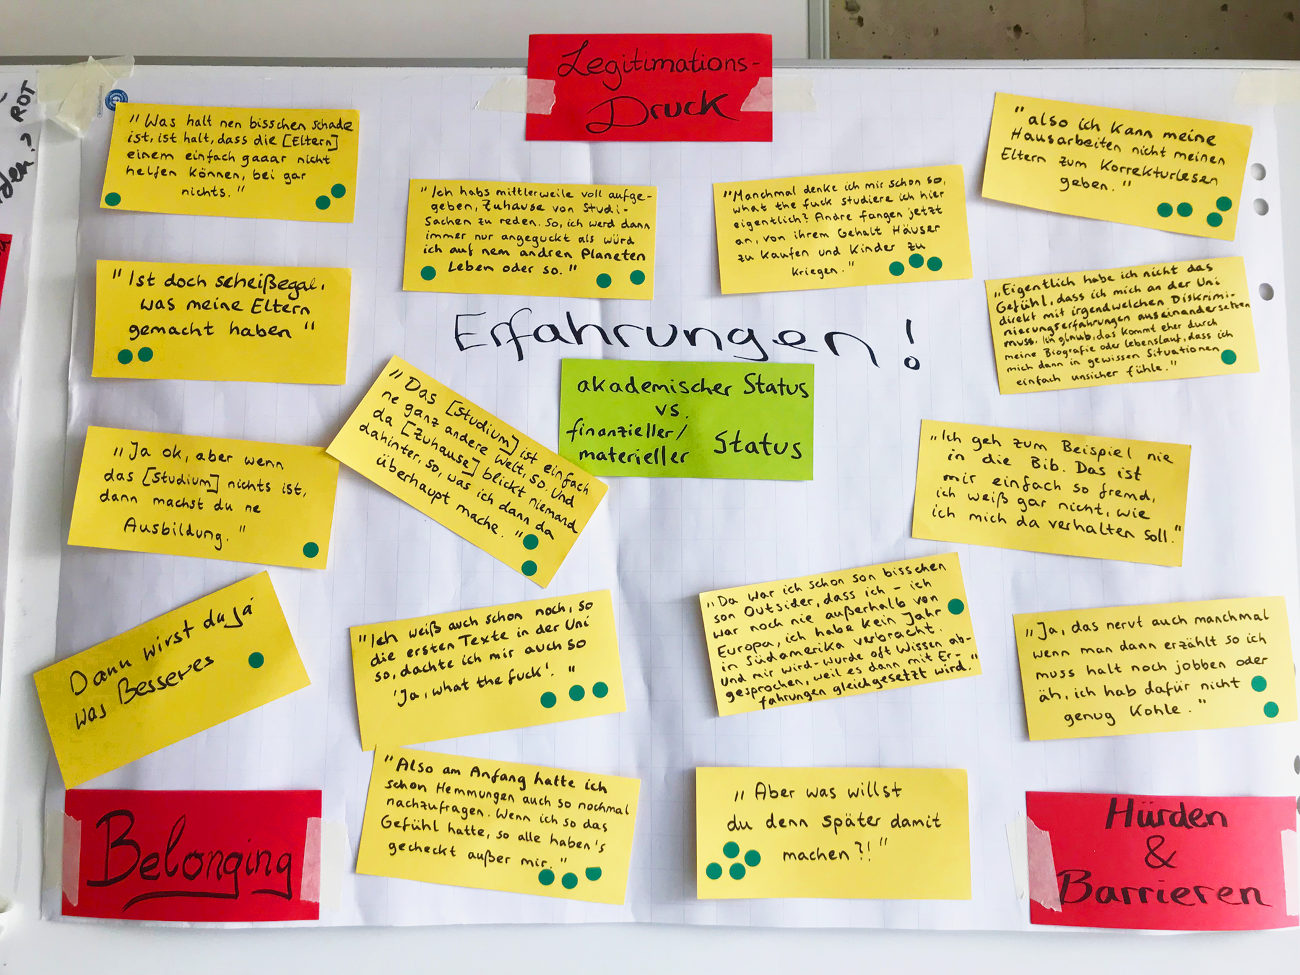 ROT
Legitimations-
Druck
"Was halt nen bisschen schade
ist, ist halt, dass die [Eltern]
einem einfach gaaar nicht
helfen können, bei gar
nichts."
"Ich habs mittlerweile voll aufge-
geben, Zuhause von Studi-
Sachen zu reden. So, ich werd dann
immer nur angeguckt als würd
ich auf nem andren Planeten
Leben oder so."
"Manchmal denke ich mir schon so,
what the fuck studiere ich hier
eigentlich? Andre fangen jetzt
an, von ihrem Gehalt Häuser
zu kaufen und Kinder zu
kriegen."
"also ich kann meine
Hausarbeiten nicht meinen
Eltern zum Korrekturlesen
geben."
"Ist doch scheißegal,
was meine Eltern
gemacht haben"
Erfahrungen!
"Eigentlich habe ich nicht das
Gefühl, dass ich mich an der Uni
direkt mit irgendwelchen Diskrimi-
nierungserfahrungen auseinandersetzen
muss. Ich glaub, das kommt eher durch
meine Biografie oder Lebenslauf, dass ich
mich dann in gewissen Situationen
einfach unsicher fühle."
akademischer Status
vs.
finanzieller/
materieller Status
"Das [Studium] ist einfach
ne ganz andere Welt, so. Und
da [Zuhause] blickt niemand
dahinter, so, was ich dann da
überhaupt mache."
"Ja ok, aber wenn
das [Studium] nichts ist,
dann machst du ne
Ausbildung."
"Ich geh zum Beispiel nie
in die Bib. Das ist
mir einfach so fremd,
ich weiß gar nicht, wie
ich mich da verhalten soll."
Dann wirst du ja
was Besseres
"Ich weiß auch schon noch, so
die ersten Texte in der Uni
so, dachte ich mir auch so
'Ja, what the fuck'."
"Da war ich schon son bisschen
son Outsider, dass ich - ich
war noch nie außerhalb von
Europa, ich habe kein Jahr
in Südamerika verbracht.
Und mir wird - wurde oft Wissen ab-
gesprochen, weil es dann mit Er-
fahrungen gleichgesetzt wird."
"Ja, das nervt auch manchmal
wenn man dann erzählt so ich
muss halt noch jobben oder
äh, ich hab dafür nicht
genug Kohle."
"Also am Anfang hatte ich
schon Hemmungen auch so nochmal
nachzufragen. Wenn ich so das
Gefühl hatte, so alle haben's
gecheckt außer mir."
"Aber was willst
du denn später damit
machen?!"
Belonging
Hürden
&
Barrieren